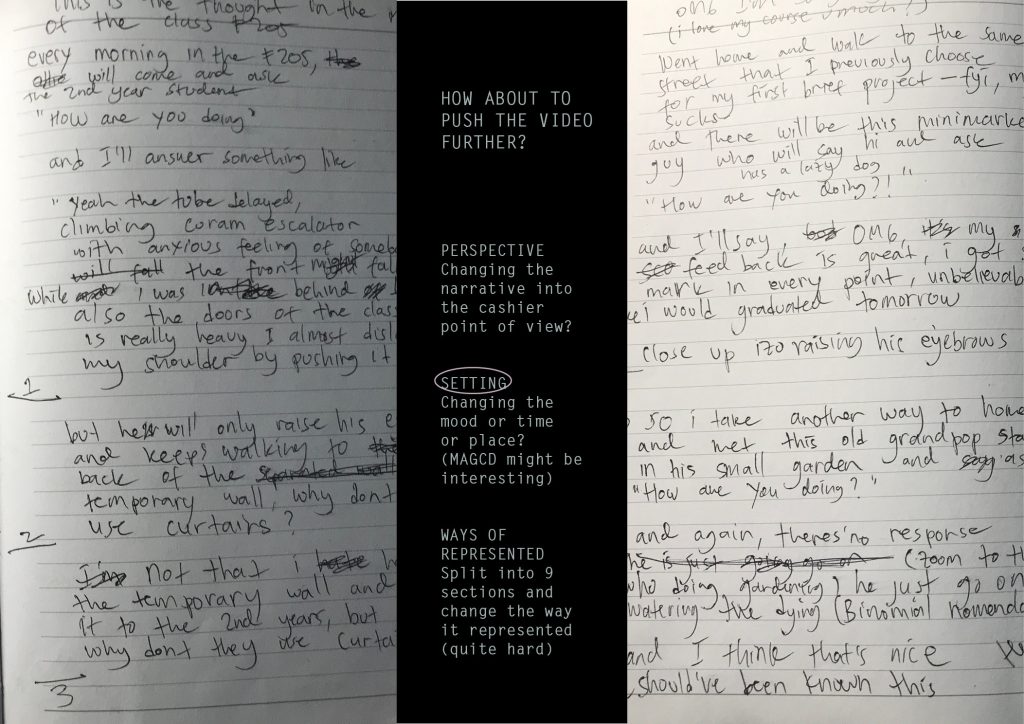 This is the thought in the
of the class F205
every morning in the F205, the
will come and ask
the 2nd year student
"How are you doing"
and I'll answer something like
"Yeah the tube delayed,
climbing Coram escalator
with anxious feeling of
will fall the front might
while I was behind
also the doors of the
is really heavy I almost
my shoulder by pushing it
1
but he will only raise his
and keeps walking to
back of the separated wall
temporary wall, why dont
use curtains?
2
I'm not that i hate
the temporary wall and
it to the 2nd years, but
why dont they use
3
HOW ABOUT TO
PUSH THE VIDEO
FURTHER?
PERSPECTIVE
Changing the
narrative into
the cashier
point of view?
SETTING
Changing the
mood or time
or place?
(MAGCD might be
interesting)
WAYS OF
REPRESENTED
Split into 9
sections and
change the way
it represented
(quite hard)
(i love my course much!)
Went home and walk to the same
street that I previously choose
for my first brief project - fyi,
sucks
and there will be this minimarket
guy who will say hi and ask
has a lazy dog
"How are you doing?!"
and I'll say, OMG, my
feed back is great, i got
mark in every point,
i would graduated tomorrow
close up izo raising his eyebrows
So i take another way to home
and met this old grandpop
in his small garden and
"How are you doing?"
and again, theres'no response
he is just going go on (zoom to
who doing gardening) he just go on
watering the dying (Binomial
and I think that's nice
should've been known this